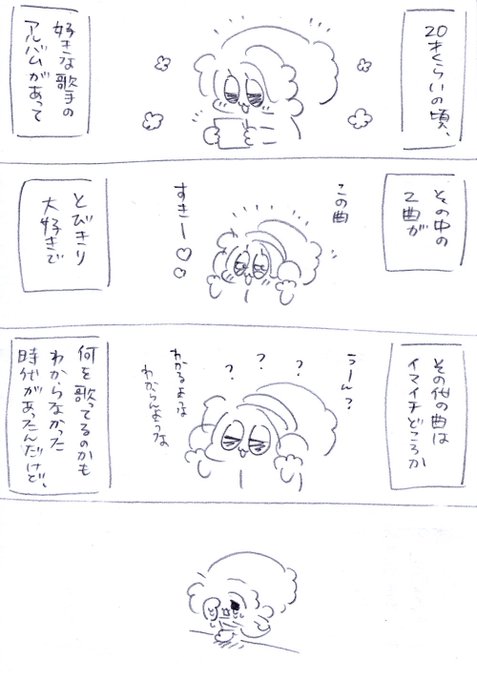 20才くらいの頃、
好きな歌手の
アルバムがあって
その中の
2曲が
この曲
すきー♡♡
とびきり
大好きで
その他の曲は
イマイチどころか
うーん?
? ? ?
わかるような
わからんような
何を歌ってるのかも
わからなかった
時代があったんだけど、